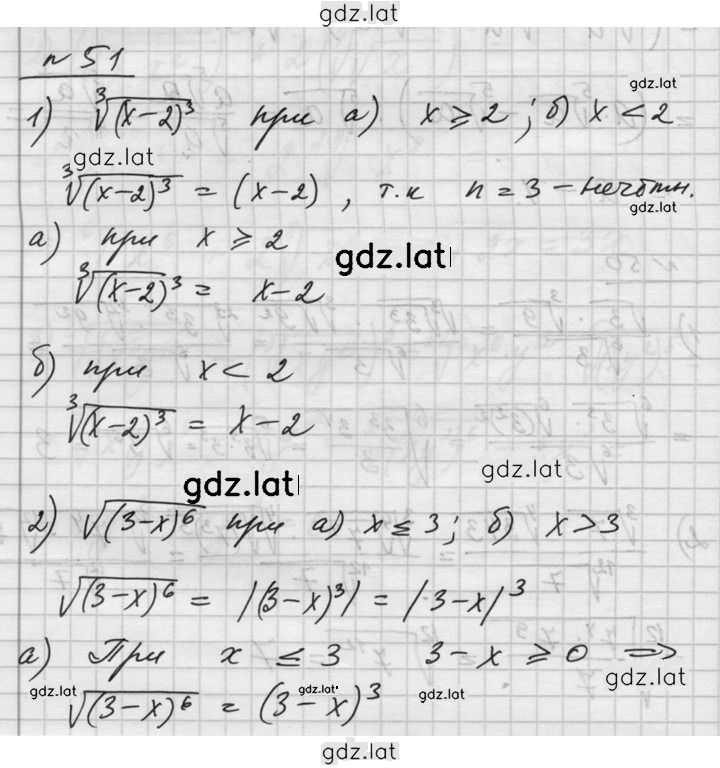 gdz.lat
n 51
gdz.lat
1) ∛(x-2)³ при а) x ⩾ 2 ; б) x < 2
gdz.lat
∛(x-2)³ = (x-2) , т.к n = 3 - нечётн.
gdz.lat
а) при x ⩾ 2
gdz.lat
∛(x-2)³ = x-2
б) при x < 2
∛(x-2)³ = x-2
gdz.lat
gdz.lat
2) √(3-x)⁶ при а) x ≤ 3; б) x > 3
√(3-x)⁶ = |(3-x)³| = |3-x|³
а) При x ≤ 3 3-x ⩾ 0 ⇒
gdz.lat
gdz.lat gdz.lat gdz.lat
√(3-x)⁶ = (3-x)³
gdz.lat